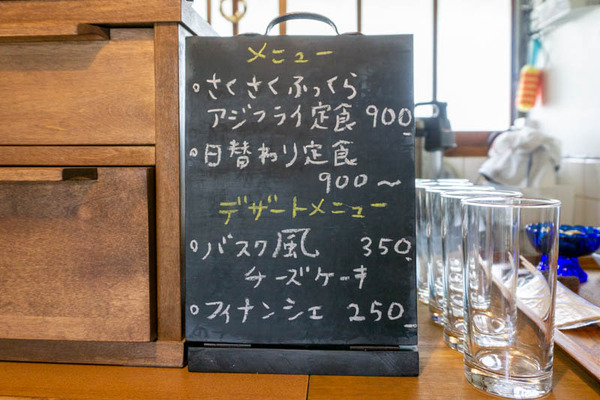 メニュー
○さくさくふっくら
アジフライ定食 900
○日替わり定食
900〜
デザートメニュー
○バスク風 350
チーズケーキ
○フィナンシェ 250